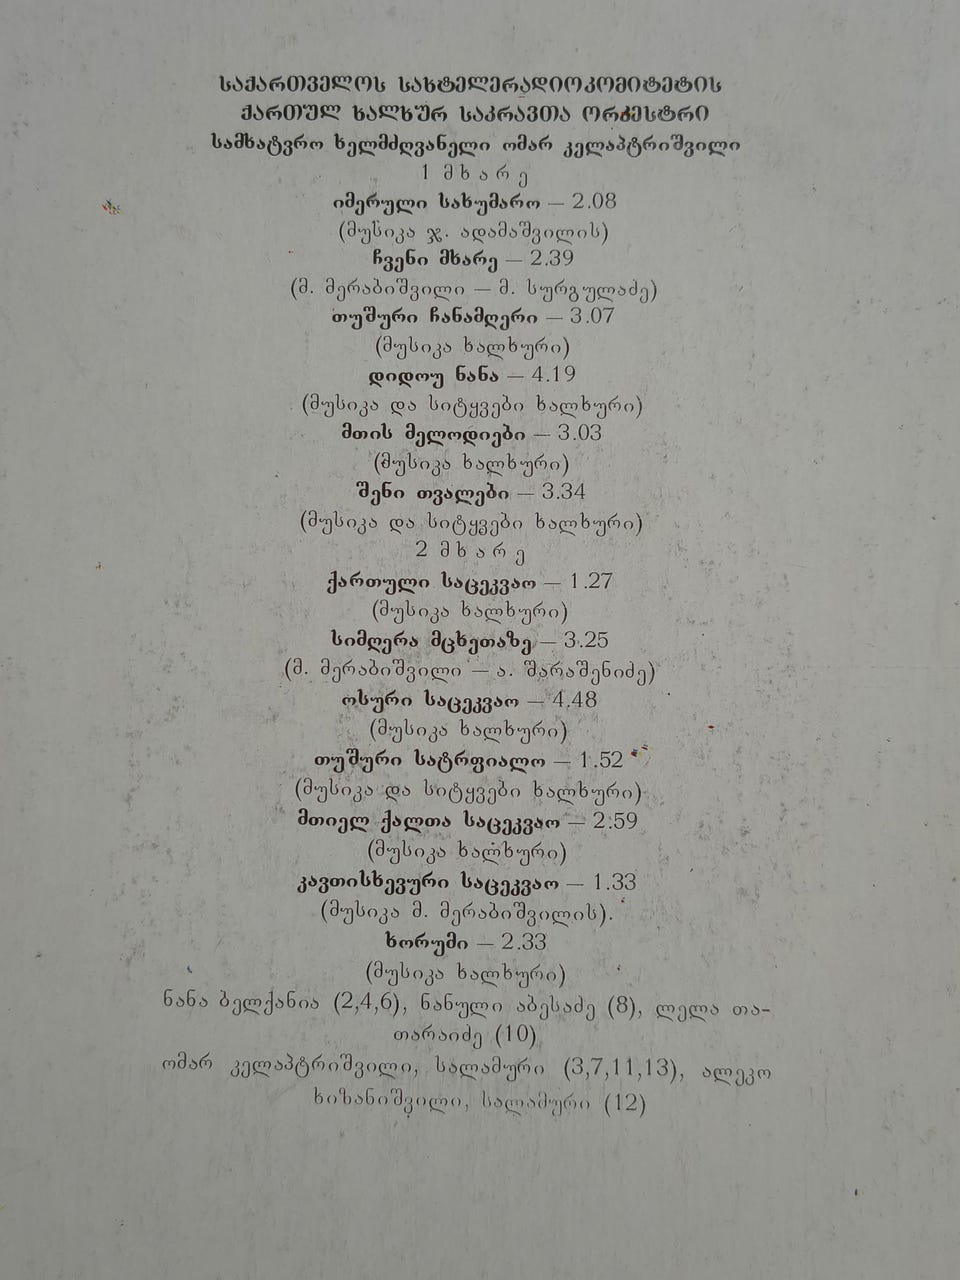 საქართველოს სახტელერადიოკომიტეტის
ქართულ ხალხურ საკრავთა ორკესტრი
სამხატვრო ხელმძღვანელი ომარ კელაპტრიშვილი
1 მხარე
იმერული სახუმარო — 2.08
(მუსიკა ჯ. ადამაშვილის)
ჩვენი მხარე — 2.39
(მ. მერაბიშვილი — მ. სურგულაძე)
თუშური ჩანამღერი — 3.07
(მუსიკა ხალხური)
დიდოუ ნანა — 4.19
(მუსიკა და სიტყვები ხალხური)
მთის მელოდიები — 3.03
(მუსიკა ხალხური)
შენი თვალები — 3.34
(მუსიკა და სიტყვები ხალხური)
2 მხარე
ქართული საცეკვაო — 1.27
(მუსიკა ხალხური)
სიმღერა მცხეთაზე — 3.25
(მ. მერაბიშვილი — ა. შარაშენიძე)
ოსური საცეკვაო — 4.48
(მუსიკა ხალხური)
თუშური სატრფიალო — 1.52
(მუსიკა და სიტყვები ხალხური)
მთიელ ქალთა საცეკვაო — 2.59
(მუსიკა ხალხური)
კავთისხევური საცეკვაო — 1.33
(მუსიკა მ. მერაბიშვილის).
ხორუმი — 2.33
(მუსიკა ხალხური)
ნანა ბელქანია (2,4,6), ნანული აბესაძე (8), ლელა თა-
თარაიძე (10)
ომარ კელაპტრიშვილი, სალამური (3,7,11,13), ალეკო
ხიზანიშვილი, სალამური (12)